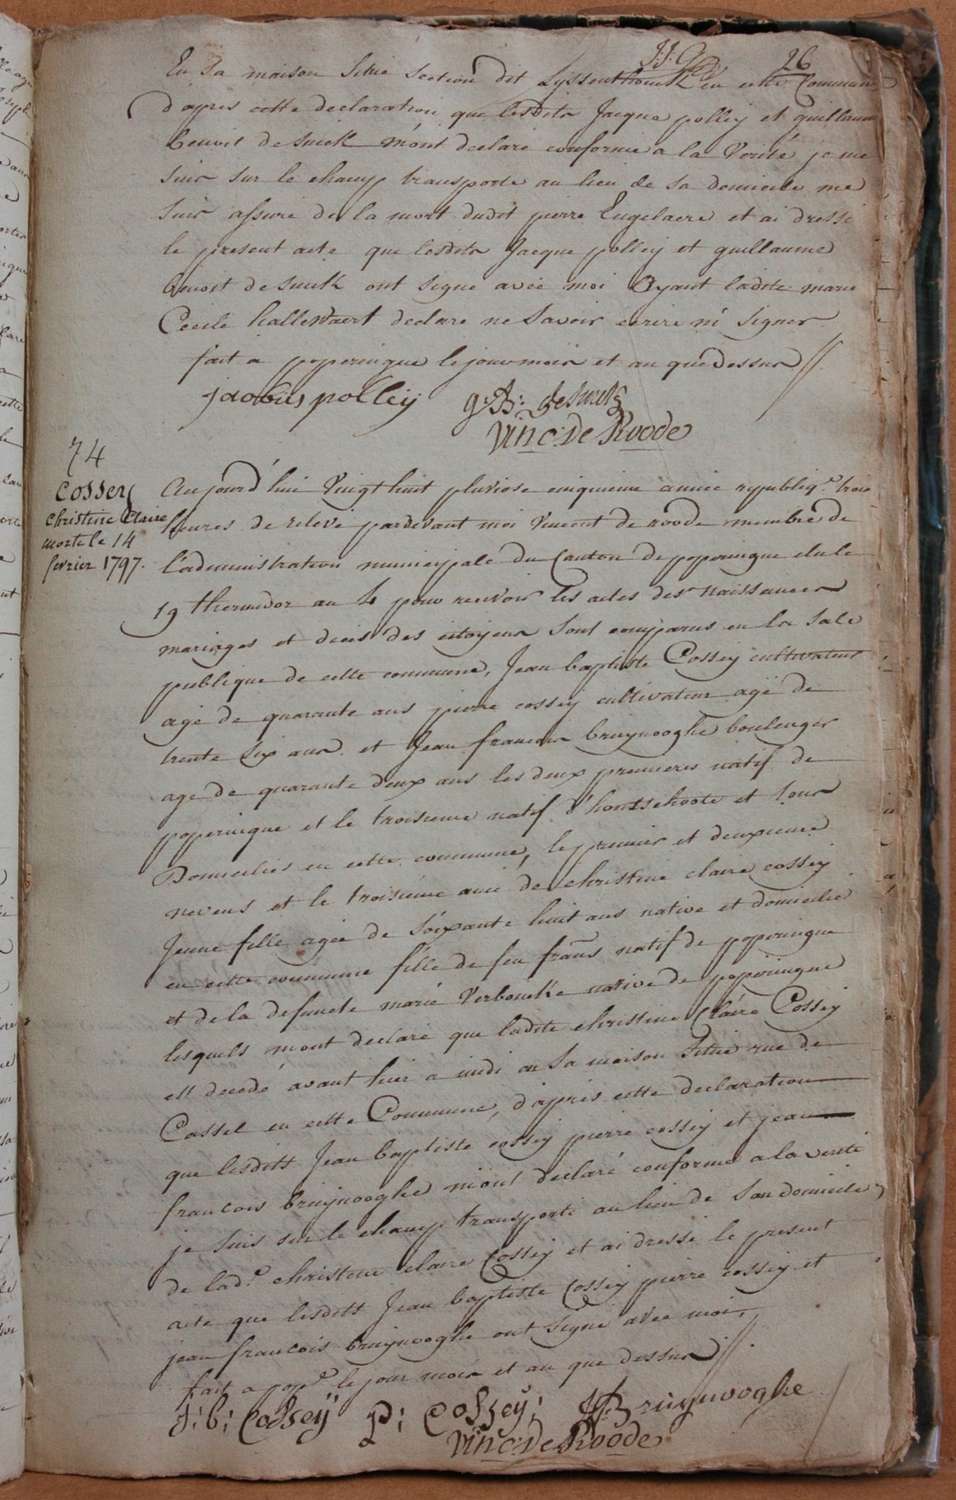 26
En sa maison sitüe section dit Lyssenthouck en cette Commune
d'apres cette declaration que lesdits Jacque polley et guillaume
benoit desmek m'ont declaré conforme a la verité je me
suis sur le champ transporte au lieu de sa domicile me
suis assuré de la mort dudit pierre Engelaere et ai dressé
le present acte que lesdits Jacque polley et guillaume
benoit desmek ont signe avec moi ayant ladite marie
Cecile hallewaert declare ne savoir ecrire ni signer
fait a poperingue le jour mois et an que dessus
jacobus polleij g: B: desmek
Vinc: De Roode
74
Cossey
christine Claire
morte le 14
fevrier 1797.
Aujourd'hui vingt huit pluviose cinquieme année republiq.e trois
heures de relevé pardevant moi vincent de roode membre de
l'administration municipale du Canton de poperingue elu le
19 thermidor an 4 pour recevoir les actes des naissances
mariages et décès des citoyens sont comparus en la sale
publique de cette commune, Jean baptiste Cossey cultivateur
agé de quarante ans pierre cossey cultivateur agé de
trente six ans et Jean francois bruynooghe boulenger
age de quarante deux ans les deux premieres natif de
poperingue et le troisieme natif d'hontschoote et tous
Domiciliés en cette commune, le premier et deuxieme
neveus et le troisieme ami de christine claire cossey
Jeune fille agée de soixante huit ans native et domicilié
en cette commune fille de feu frans natif de poperingue
et de la defuncte marie Verboucke native de poperingue
lesquels m'ont declaré que ladite christine Claire Cossey
est decedé avant hier a midi en sa maison sitüe rue de
Cassel en cette Commune, d'après cette declaration
que lesdits Jean baptiste cossey pierre cossey et jean
francois bruynooghe m'ont declaré conforme a la verité
je suis sur le champ transporté au lieu de son domicile
de lad.e christine claire Cossey et ai dressé le present
acte que lesdits Jean baptiste Cossey pierre cossey et
jean francois bruynooghe ont signé avec moi,
fait a pop.e le jour mois et an que dessus
J: b: Cosseÿ P: Cossey: JF Bruynooghe
Vinc: De Roode